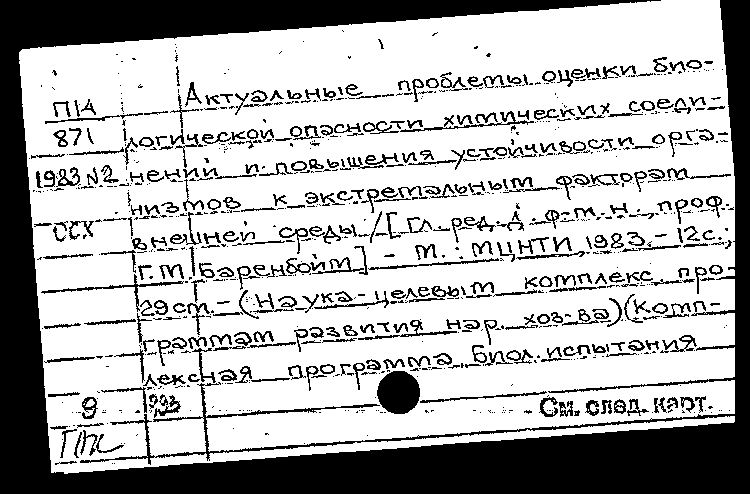 П14
871
1983 N2
ССХ
Актуальные проблемы оценки био-
логической опасности химических соеди-
нений и повышения устойчивости орга-
низмов к экстремальным факторам
внешней среды /[Гл. ред. д. ф-м. н., проф.
Г.М. Баренбойм] - М.: МЦНТИ, 1983. - 12 с.;
29 см. - (Наука - целевым комплекс. про-
граммам развития нар. хоз-ва) (Комп-
лексная программа "Биол. испытания
9
См. след. карт.